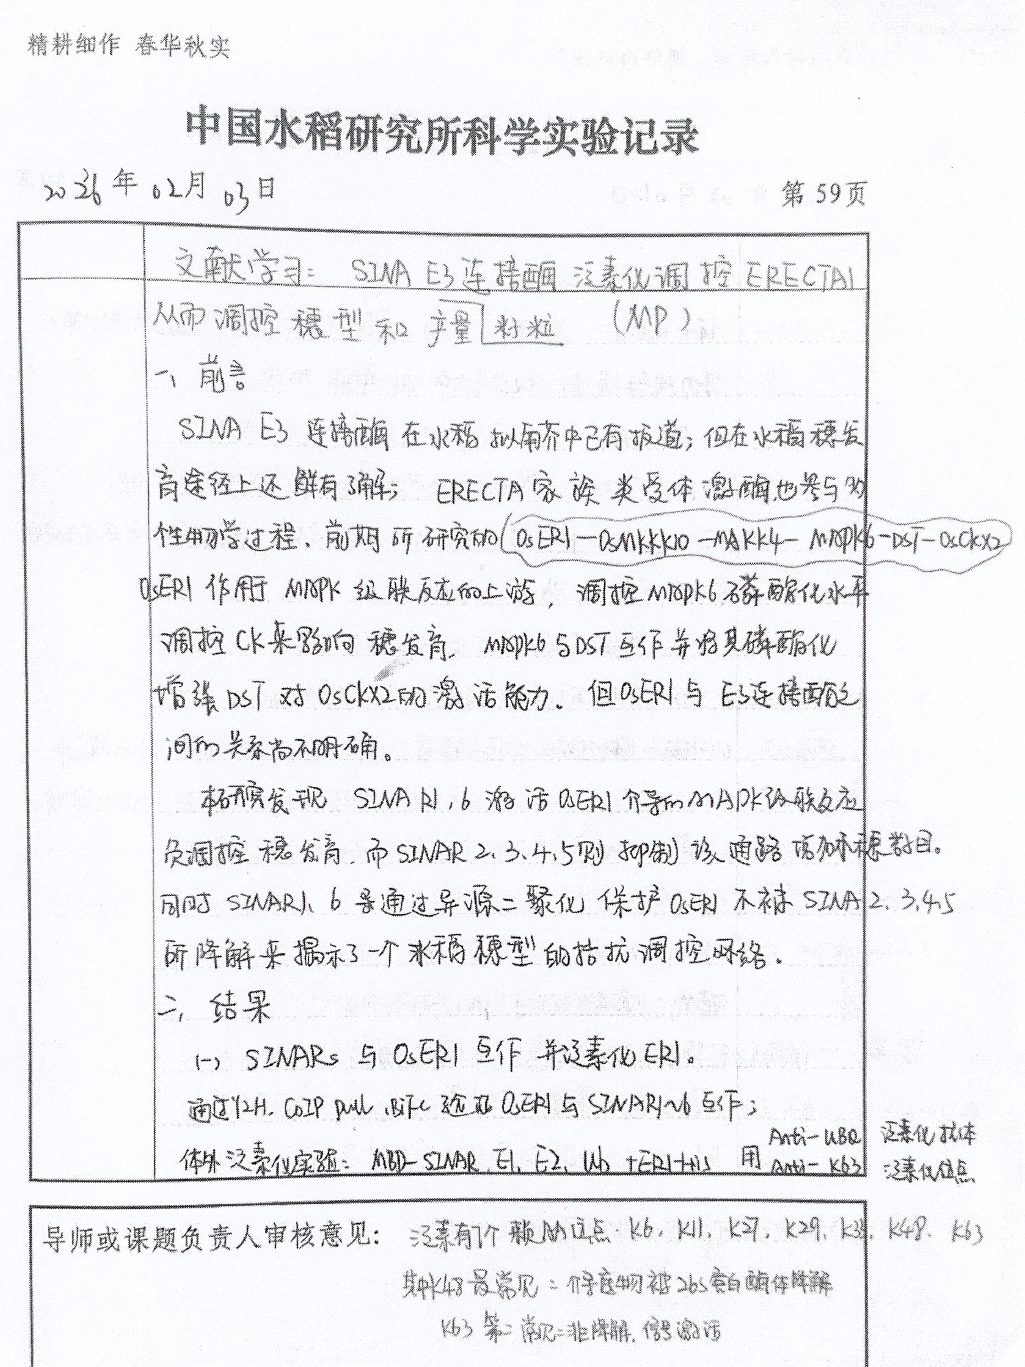 精耕细作 春华秋实
中国水稻研究所科学实验记录
2026年02月03日
第59页
文献学习: SINA E3连接酶 泛素化调控 ERECTA1
从而调控穗型和产量 籽粒 (MP)
一、前言
SINA E3 连接酶在水稻 拟南芥中已有报道; 但在水稻穗发
育途径上还鲜有了解; ERECTA 家族类受体激酶也参与多
性物学过程、前期所研究的 (OsER1—OsMKKK10—MAKK4—MAPK6—DST—OsCKX2
OsER1 作用于 MAPK 级联反应的上游, 调控MAPK6磷酸化水平
调控CK来影响穗发育. MAPK6与DST互作并将其磷酸化
增强DST对OsCKX2的激活能力. 但OsER1与E3连接酶之
间的关系尚不明确。
本研究发现 SINAR1,6 激活OsER1介导的MAPK级联反应
负调控穗发育. 而SINAR2.3.4.5则抑制该通路 增加穗数目。
同时SINAR1、6是通过异源二聚化保护OsER1不被SINA2.3.4.5
所降解来揭示了一个水稻穗型的拮抗调控网络.
二、结果
(一) SINARs 与 OsER1 互作 并泛素化ER1。
通过Y2H. CoIP pull .BiFC 验证OsER1与SINAR1~6互作;
体外泛素化实验: MBP-SINAR. E1. E2. Ub +ER1-His 用 Anti-UBQ 泛素化抗体
Anti-K63 泛素化位点
导师或课题负责人审核意见: 泛素有7个赖氨酸位点. K6. K11. K27. K29. K33. K48. K63
其中K48最常见: 介导底物被26S蛋白酶体降解
K63第二常见: 非降解. 信号激活